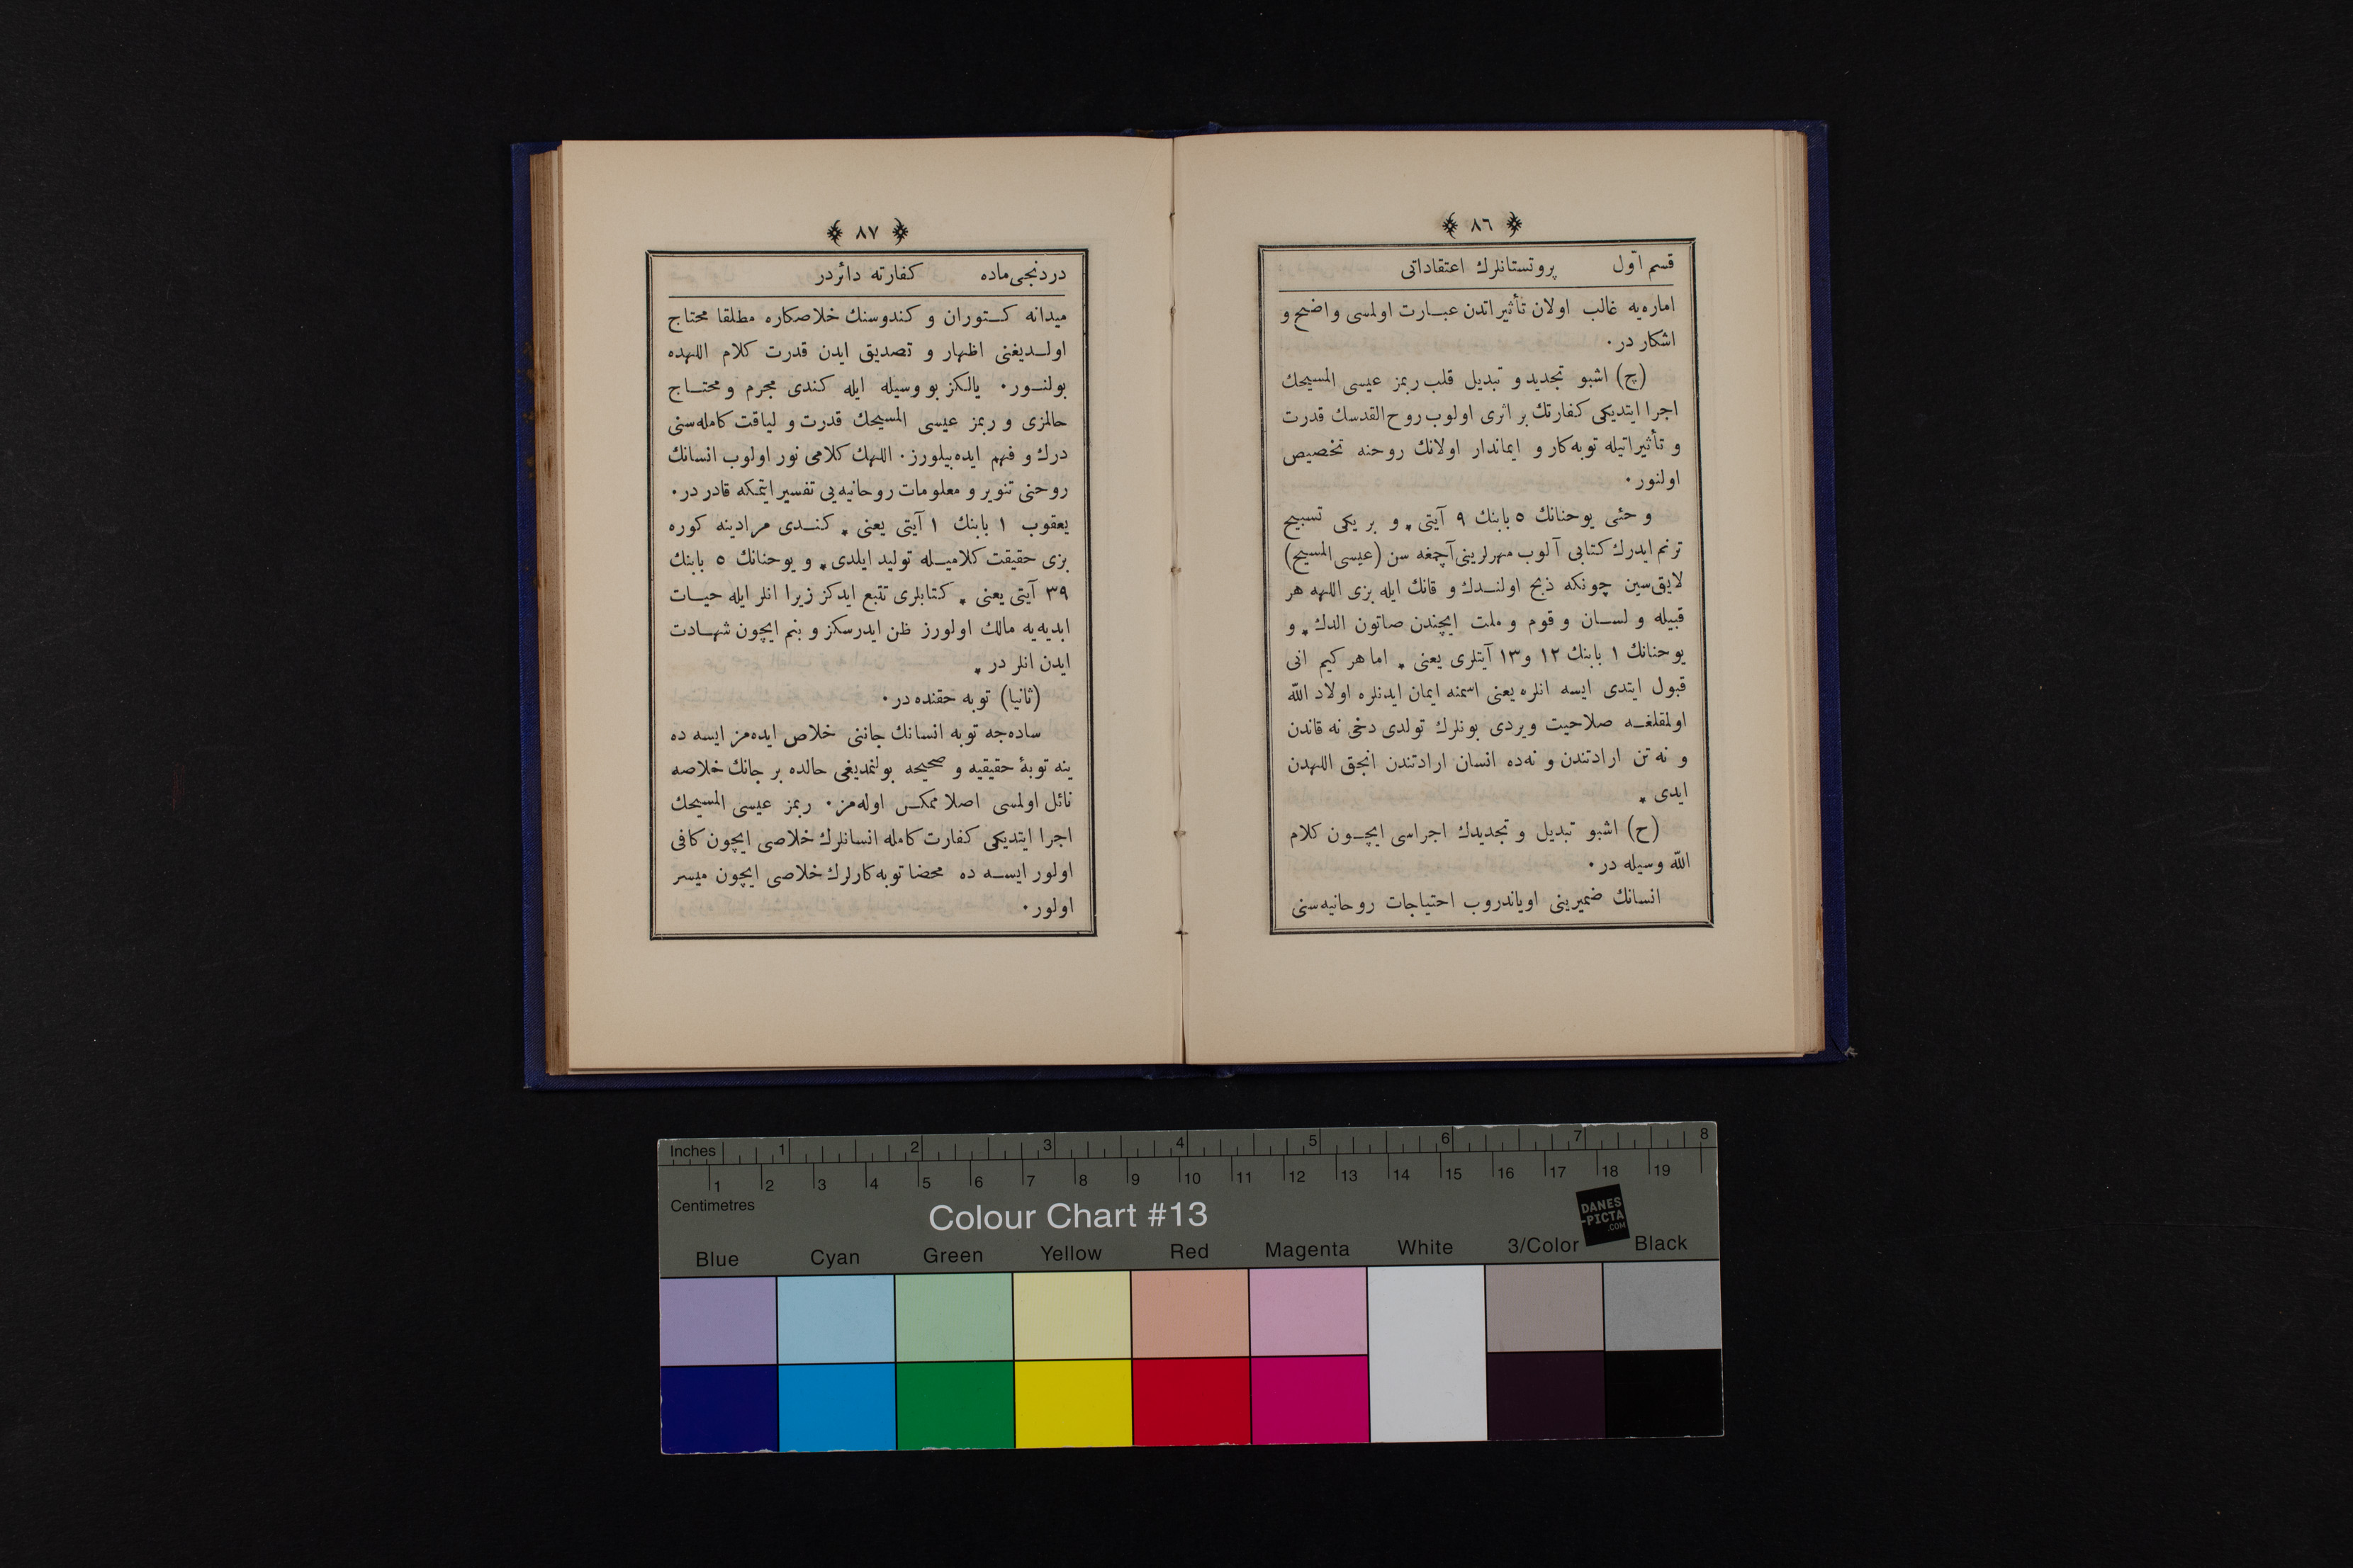 ﴿ ٨٦ ﴾
قسم اوّل پروتستانلرك اعتقاداتى
اماره‌يه غالب اولان تأثيراتدن عبارت اولمسى واضح و
اشكار در·
(ج) اشبو تجديد و تبديل قلب ربمز عيسى المسيحك
اجرا ايتديكى كفارتك بر اثرى اولوب روح القدسك قدرت
و تأثيراتيله توبه‌كار و ايماندار اولانك روحنه تخصيص
اولنور·
و حئى يوحنانك ٥ بابنك ٩ آيتى ٭ و بر يكى تسبيح
ترنم ايدرك كتابى آلوب مهرلرينى آچمغه سن (عيسى المسيح)
لايق‌سين چونكه ذبح اولندك و قانك ايله بزى اللهه هر
قبيله و لسان و قوم و ملت ايچندن صاتون الدك ٭ و
يوحنانك ١ بابنك ١٢ و١٣ آيتلرى يعنى ٭ اما هر كيم انى
قبول ايتدى ايسه انلره يعنى اسمنه ايمان ايدنلره اولاد الله
اولمقلغه صلاحيت ويردى بونلرك تولدى دخى نه قاندن
و نه تن ارادتندن و نه‌ده انسان ارادتندن انجق اللهدن
ايدى ٭
(ح) اشبو تبديل و تجديدك اجراسى ايچون كلام
الله وسيله در·
انسانك ضميرينى اوياندروب احتياجات روحانيه‌سنى
﴿ ٨٧ ﴾
دردنجى ماده كفارته دائردر
ميدانه كتوران و كندوسنك خلاصكاره مطلقا محتاج
اولديغنى اظهار و تصديق ايدن قدرت كلام اللهده
بولنور· يالكز بو وسيله ايله كندى مجرم و محتاج
حالمزى و ربمز عيسى المسيحك قدرت و لياقت كامله‌سنى
درك و فهم ايده‌بيلورز· اللهك كلامى نور اولوب انسانك
روحنى تنوير و معلومات روحانيه‌يى تفسير ايتمكه قادر در·
يعقوب ١ بابنك ١ آيتى يعنى ٭ كندى مرادينه كوره
بزى حقيقت كلاميله توليد ايلدى ٭ و يوحنانك ٥ بابنك
٣٩ آيتى يعنى ٭ كتابلرى تتبع ايدكز زيرا انلر ايله حيات
ابديه‌يه مالك اولورز ظن ايدرسكز و بنم ايچون شهادت
ايدن انلر در ٭
(ثانيا) توبه حقنده در·
ساده‌جه توبه انسانك جاننى خلاص ايده‌مز ايسه ده
ينه توبهٔ حقيقيه و صحيحه بولنمديغى حالده بر جانك خلاصه
نائل اولمسى اصلا ممكن اوله‌مز· ربمز عيسى المسيحك
اجرا ايتديكى كفارت كامله انسانلرك خلاصى ايچون كافى
اولور ايسه ده محضا توبه‌كارلرك خلاصى ايچون ميسر
اولور·
Inches 1 2 3 4 5 6 7 8
1 2 3 4 5 6 7 8 9 10 11 12 13 14 15 16 17 18 19
Centimetres
Colour Chart #13
DANES
-PICTA
.COM
Blue Cyan Green Yellow Red Magenta White 3/Color Black